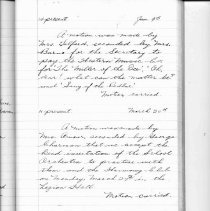 10 present Jan 8th
A motion was made by
Mrs. Telford, seconded by Mrs.
for the Secretary to
pay the Western Music Co.
for "The Miller of the Dee," "Oh
dear what can the matter be?"
and "Song of the Pedlar"
Motion carried
11 present March 20th
A motion was made by
Mrs. seconded by George
Charman that we accept the
kind invitation of the School
Orchestra to practise with
them and the Harmony Club
on Monday March 27th, in the
Legion Hall.
Motion carried.